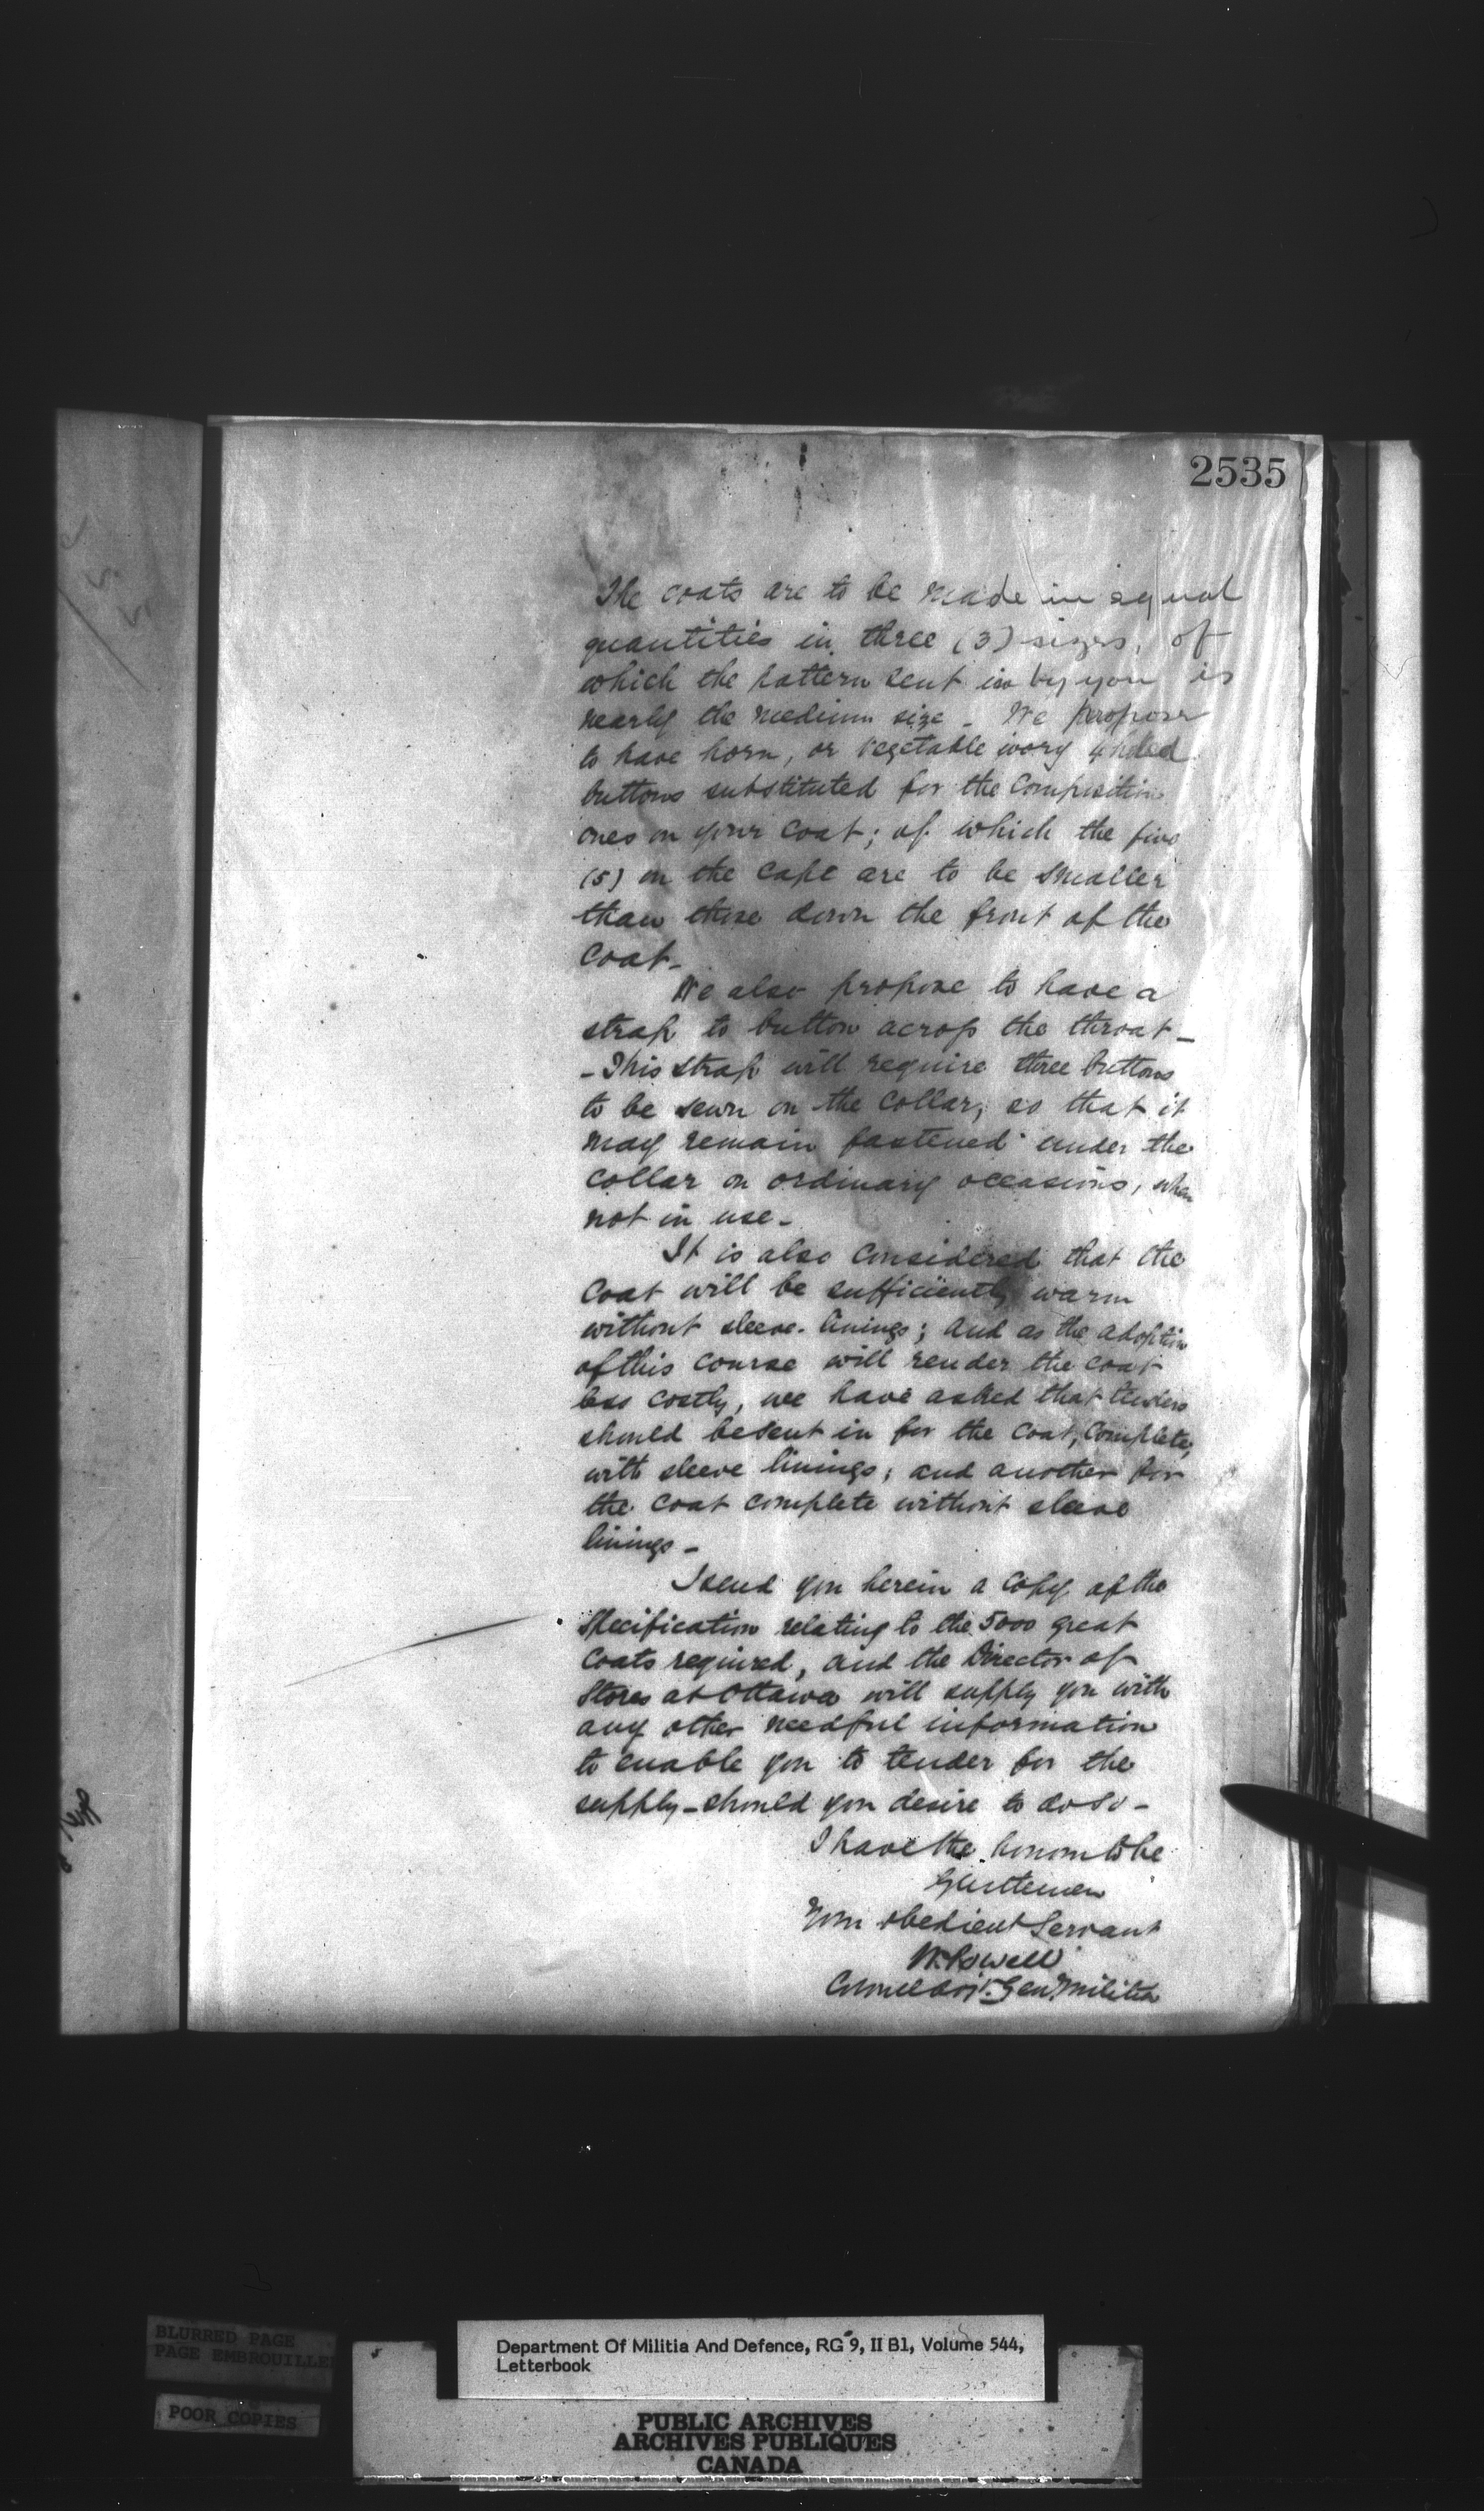 2535
The coats are to be made in equal
quantities in three (3) sizes, of
which the pattern sent in by you is
nearly the medium size - We propose
to have horn, or vegetable ivory 4 holed
buttons substituted for the Composition
ones on your Coat; of which the five
(5) on the Cape are to be smaller
than those down the front of the
Coat -
We also propose to have a
strap to button across the throat -
- This strap will require three buttons
to be sewn on the Collar, so that it
may remain fastened under the
Collar on ordinary occasions, when
not in use -
It is also Considered that the
Coat will be sufficiently warm
without sleeve-linings; and as the adoption
of this course will render the coat
less costly, we have asked that tenders
should be sent in for the Coat, Complete,
with sleeve linings; and another for
the Coat complete without sleeve
linings -
I send you herein a Copy of the
Specification relating to the 5000 great
Coats required, and the Director of
Stores at Ottawa will supply you with
any other needful information
to enable you to tender for the
supply - should you desire to do so -
I have the honour to be
Gentlemen
Your obedient Servant
W. Powell
Colonel Adjt. Gen. Militia
BLURRED PAGE
PAGE EMBROUILLE
POOR COPIES
Department Of Militia And Defence, RG 9, II B1, Volume 544,
Letterbook
PUBLIC ARCHIVES
ARCHIVES PUBLIQUES
CANADA